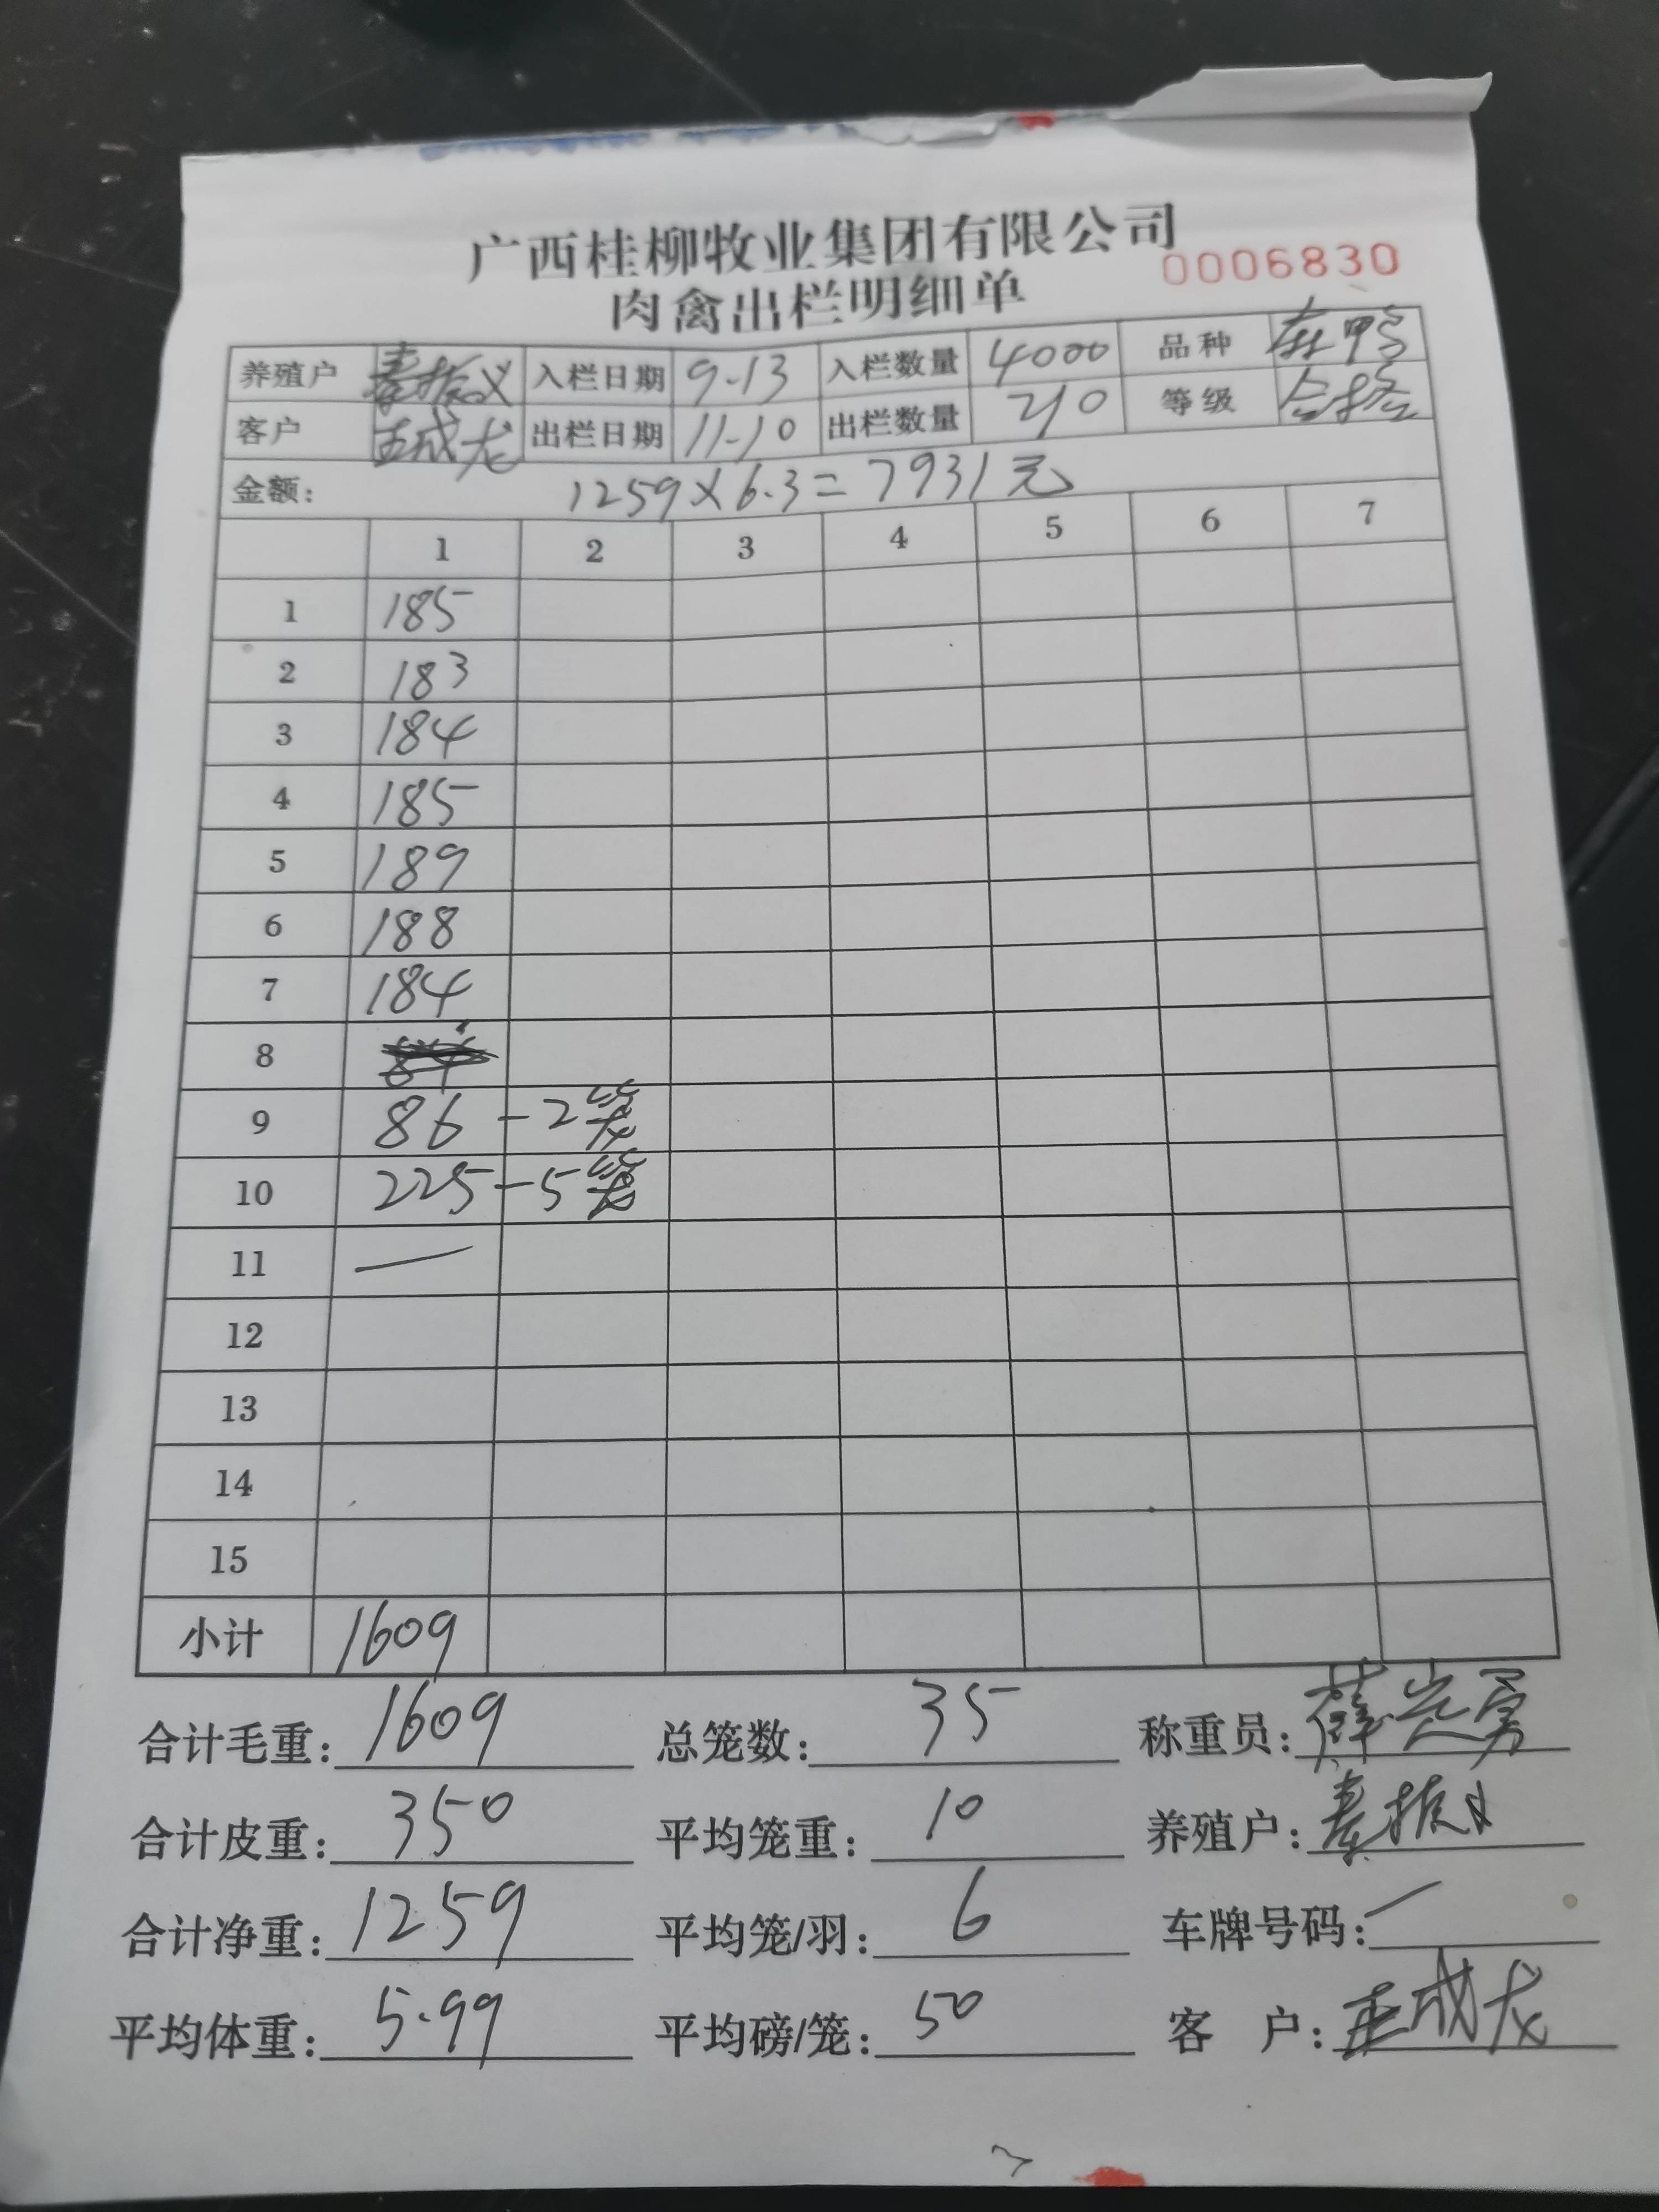 广西桂柳牧业集团有限公司
0006830
肉禽出栏明细单
养殖户 秦振义 入栏日期 9-13 入栏数量 4000 品种 麻鸭
客户 王成龙 出栏日期 11-10 出栏数量 210 等级 合格
金额: 1259×6.3=7931元
1 2 3 4 5 6 7
1 185
2 183
3 184
4 185
5 189
6 188
7 184
8
9 86 -2笼
10 225 -5笼
11 —
12
13
14
15
小计 1609
合计毛重: 1609 总笼数: 35 称重员: 薛
合计皮重: 350 平均笼重: 10 养殖户: 秦振义
合计净重: 1259 平均笼/羽: 6 车牌号码: —
平均体重: 5.99 平均磅/笼: 50 客 户: 王成龙